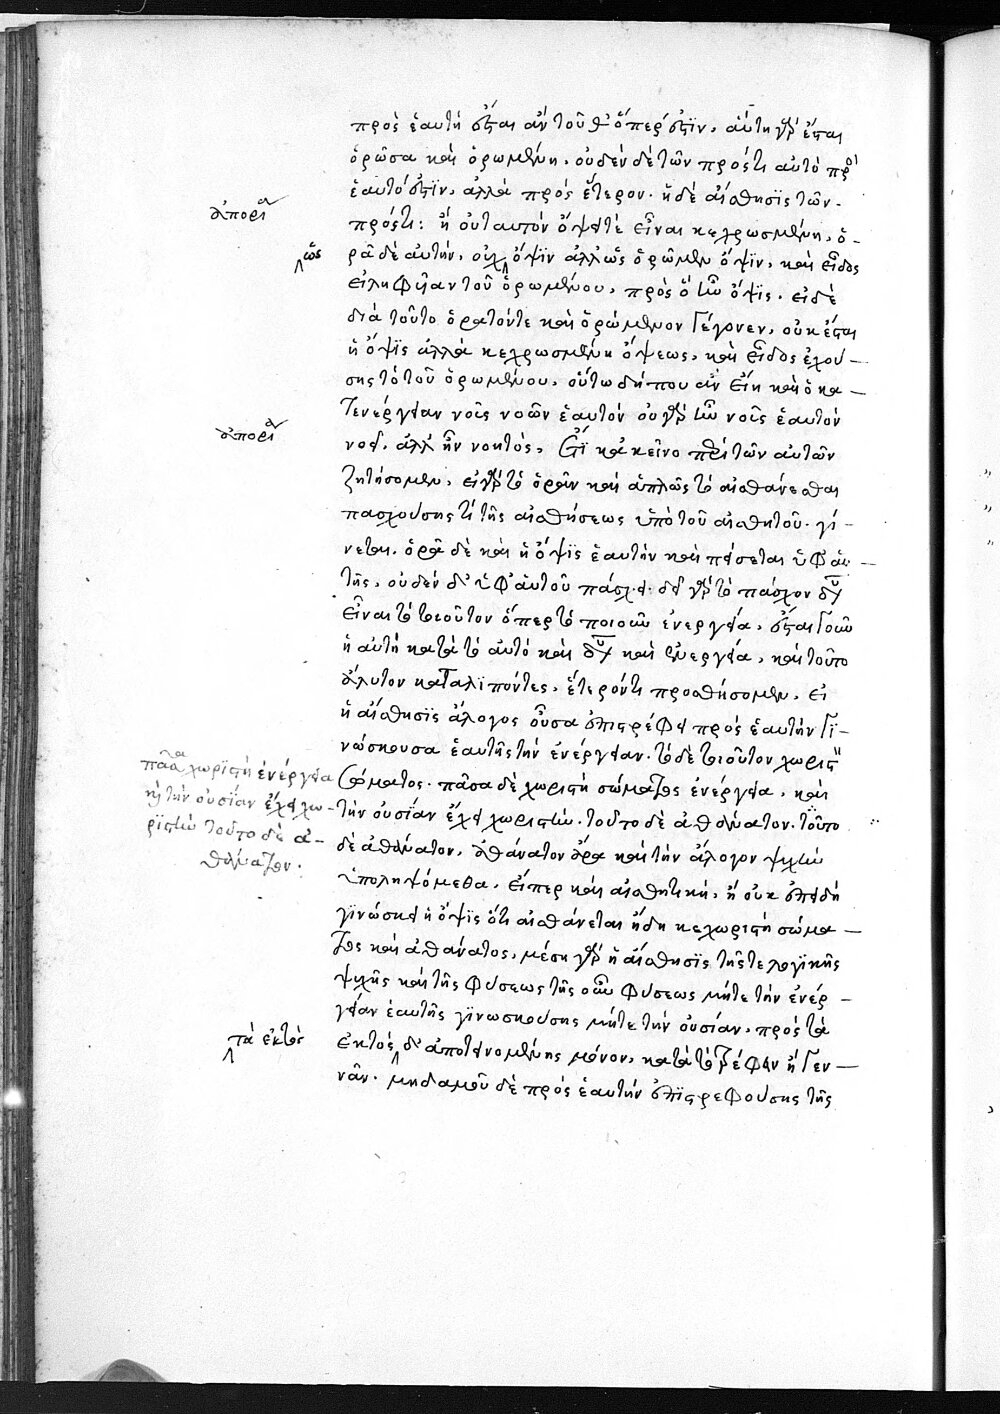 πρὸς ἑαυτὴν ἔσται ἂν τοῦθ' ὅπερ ἐστίν, αὕτη γὰρ ἔσται
ὁρῶσα καὶ ὁρωμένη. οὐδὲν δὲ τῶν πρός τι αὐτὸ πρὸς
ἑαυτό ἐστιν, ἀλλὰ πρὸς ἕτερον. ἡ δὲ αἴσθησις τῶν
ἀπορία
πρός τι: ἢ οὐ ταυτὸν ὄψει τὲ εἶναι κεχρωσμένη, ὁ-
ὡς
ρᾶ δὲ αὑτὴν, οὐχ ὄψιν ἀλλ' ὡς ὁρῶμεν ὄψιν, καὶ εἶδος
εἰληφυῖαν τοῦ ὁρωμένου, πρὸς ὃ ἦν ὄψις. εἰ δὲ
διὰ τοῦτο ὁρατόν τε καὶ ὁρώμενον γέγονεν, οὐκ ἔσται
ἡ ὄψις ἀλλὰ κεχρωσμένη ὄψεως, καὶ εἶδος ἐχού-
σης τὸ τοῦ ὁρωμένου. οὕτω δήπου ἂν εἴη καὶ ὁ κα-
τενέργειαν νοῦς νοῶν ἑαυτόν οὐ γὰρ ἦν νοῦς ἑαυτὸν
ἀπορία
νοεῖ. ἀλλ' ἦν νοητός. ἔτι κἀκεῖνο περὶ τῶν αὐτῶν
ζητήσομεν. εἰ γὰρ τὸ ὁρᾶν καὶ ἁπλῶς τὸ αἰσθάνεσθαι
πασχούσης τί τῆς αἰσθήσεως ὑπὸ τοῦ αἰσθητοῦ. γί-
νεται. ὁρᾶ δὲ καὶ ἡ ὄψις ἑαυτὴν καὶ πείσεται ὑφ' αὑ-
τῆς. οὐδὲν δ' ὑφ' αὑτοῦ πάσχει. δεῖ γὰρ τὸ πάσχον δυ
εἶναι τὸ τιοῦτον ὅπερ τὸ ποιοῦν ἐνεργεία. ἔσται γοῦν
ἡ αὐτὴ κατὰ τὸ αὐτὸ καὶ δυ καὶ ἐνεργεία. καὶ τοῦτο
ἄλυτον καταλιπόντες, ἕτερόν τι προσθήσομεν. εἰ
ἡ αἴσθησις ἄλογος οὖσα ἐπιστρέφει πρὸς ἑαυτὴν γι-
νώσκουσα ἑαυτῆς τὴν ἐνέργειαν. τὸ δὲ τιοῦτον χωριστὸν
πᾶσα χωριστὴ ἐνέργεια
καὶ τὴν οὐσίαν ἔχει χω-
ριστὴν τοῦτο δὲ ἀ-
θάνατον.
σώματος. πᾶσα δὲ χωριστὴ σώματος ἐνέργεια, καὶ
τὴν οὐσίαν ἔχει χωριστήν. τοῦτο δὲ ἀθάνατον. τοῦτο
δὲ ἀθάνατον. ἀθάνατον ἄρα καὶ τὴν ἄλογον ψυχὴν
ὑποληψόμεθα. εἴπερ καὶ αἰσθητική. ἢ οὐκ ἐπειδὴ
γινώσκει ἡ ὄψις ὅτι αἰσθάνεται ἤδη κεχωριστὴ σώμα-
τος καὶ ἀθάνατος. μέση γὰρ ἡ αἴσθησις τῆς τε λογικῆς
ψυχῆς καὶ τῆς φύσεως τῆς οὖν φύσεως μήτε τὴν ἐνέρ-
γειαν ἑαυτῆς γινωσκούσης μήτε τὴν οὐσίαν. πρὸς τὰ
τὰ ἐκτὸς
ἐκτὸς δ' ἀποτεινομένης μόνον, κατὰ τὸ τρέφειν ἢ γεν-
νᾶν. μηδαμοῦ δὲ πρὸς ἑαυτὴν ἐπιστρεφούσης τῆς